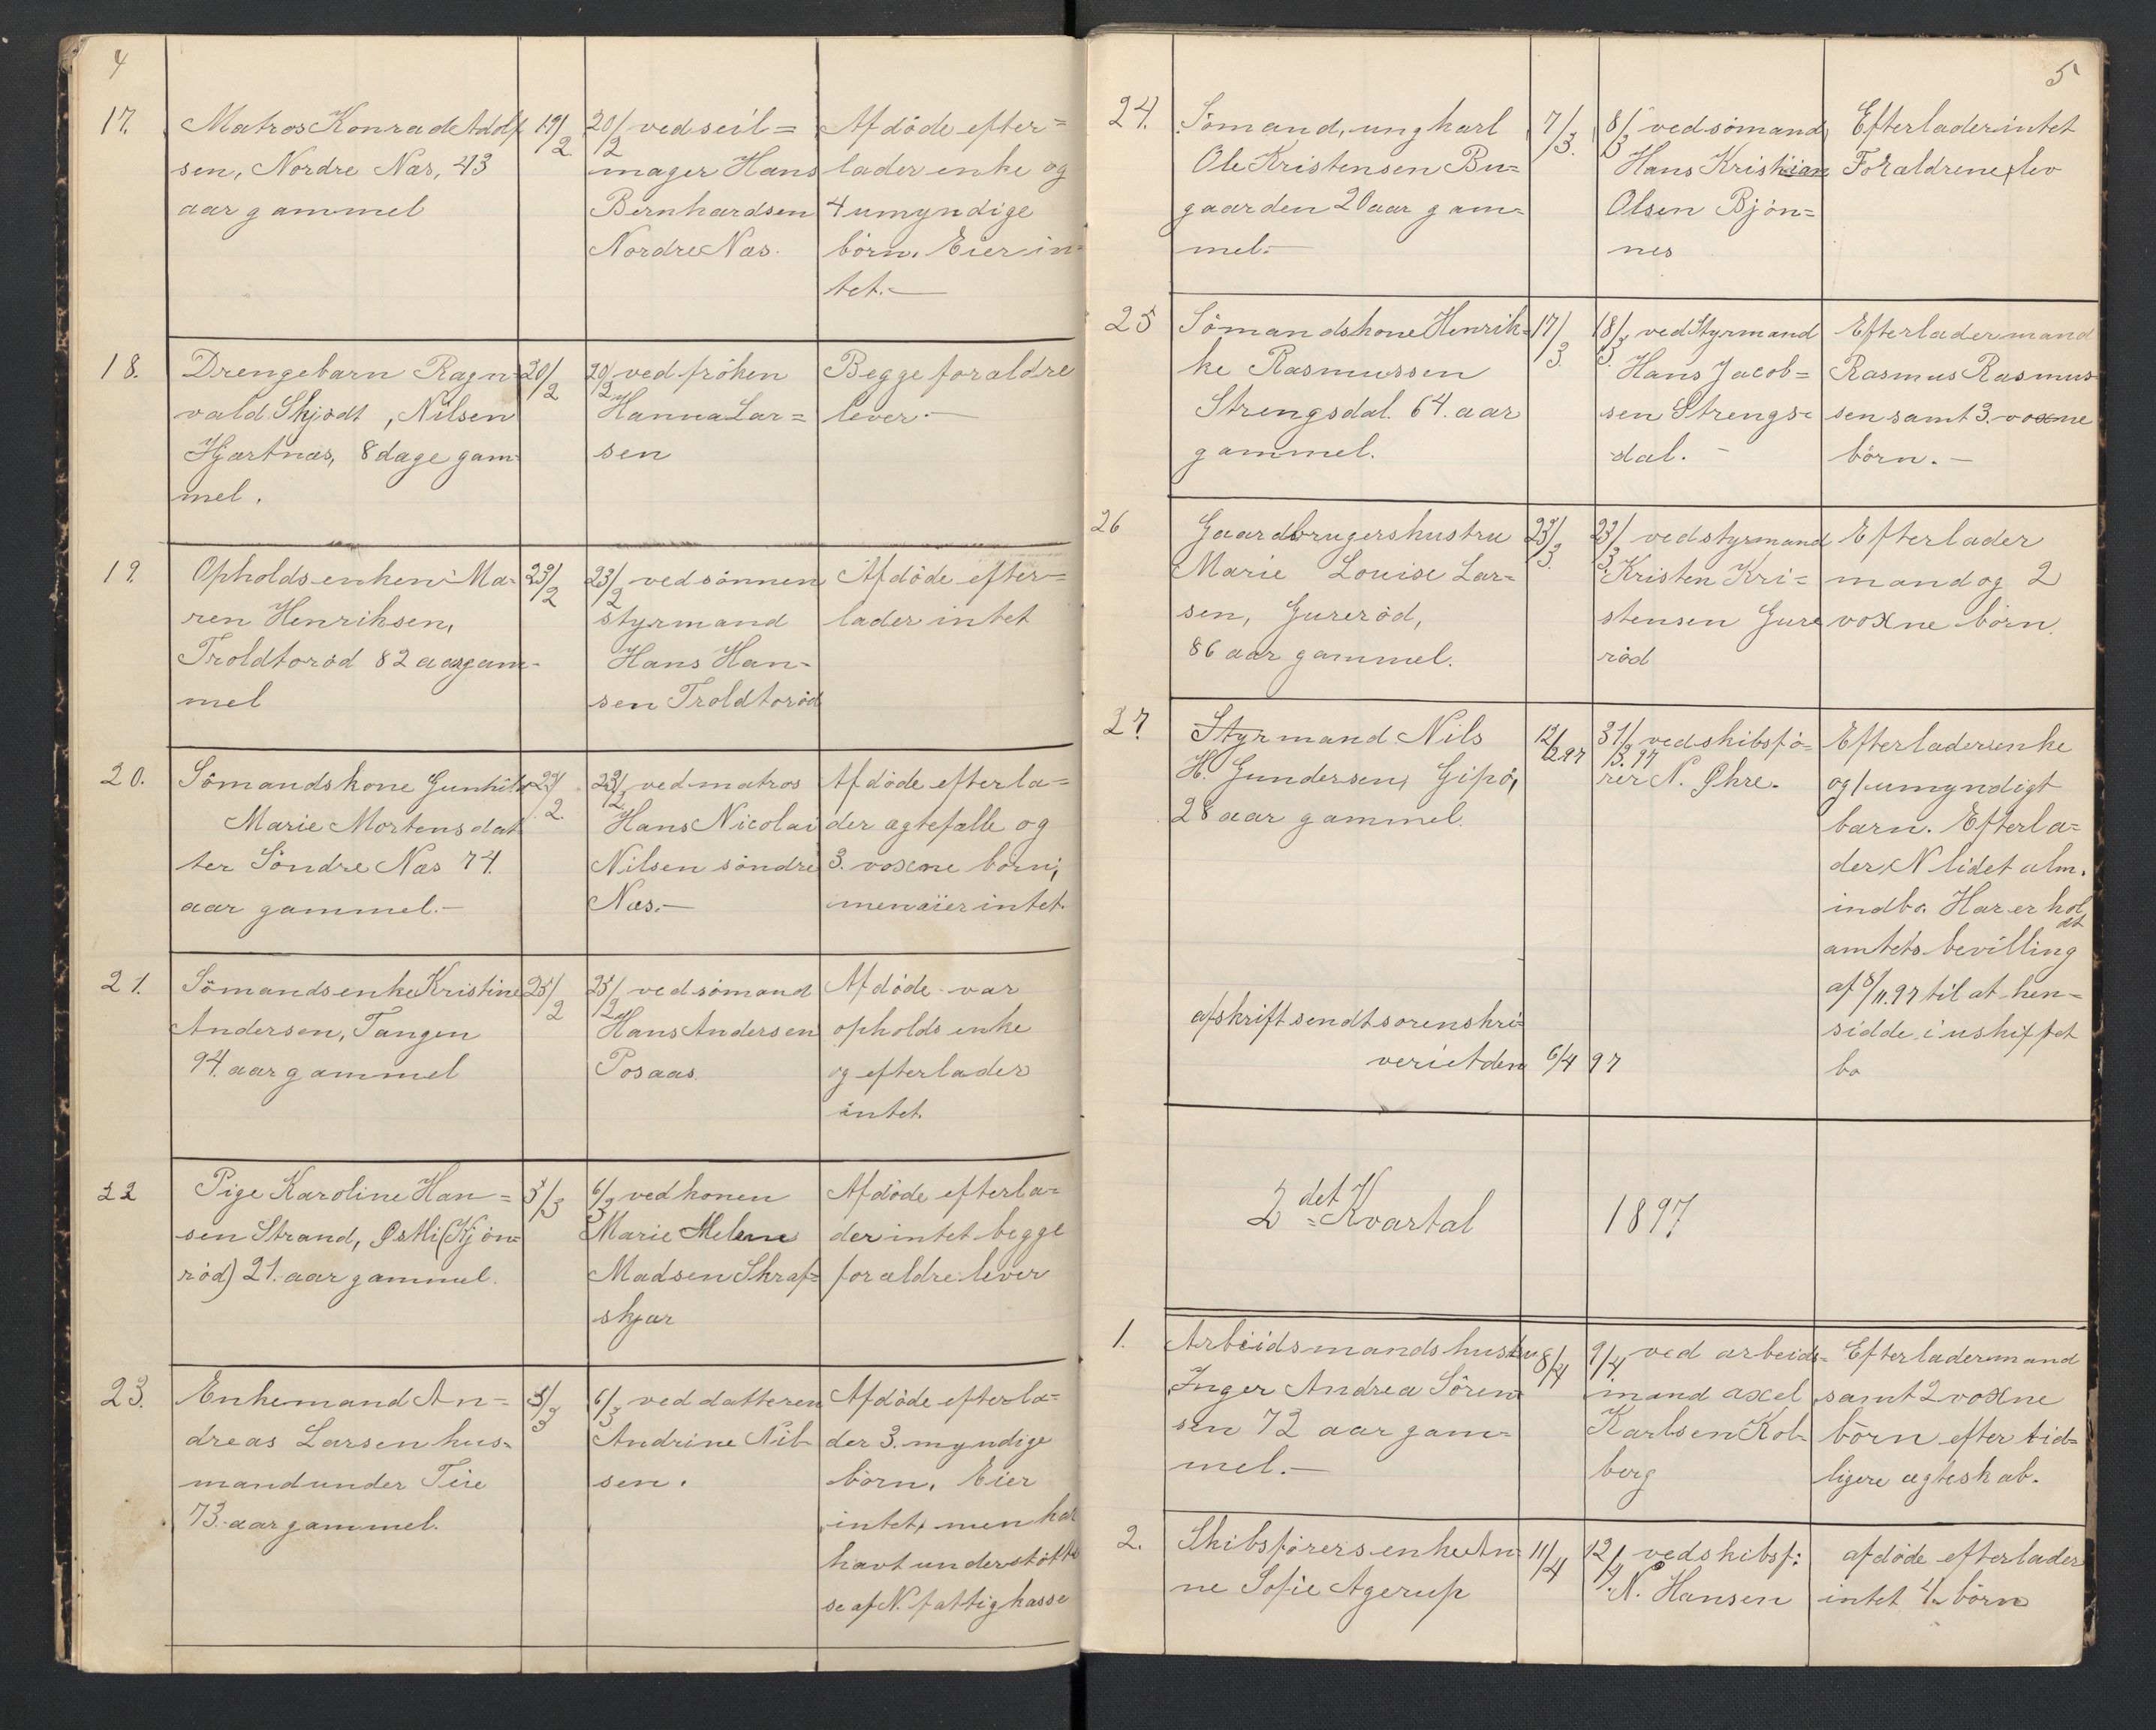 4
17.
Matros Konrad Adolf
sen, Nordre Næs, 43
aar gammel
19/2.
20/2 ved seil=
mager Hans
Bernhardsen
Nordre Næs.
Afdöde efter=
lader enke og
4 umyndige
börn. Eier in=
tet.—
18.
Drengebarn Ragn=
vald Skjödt, Nilsen
Hjertnæs, 8 dage gam
mel.
20/2
20/2 ved fröken
Hanna Lar=
sen
Begge forældre
lever.—
19.
Opholdsenken Ma-
ren Henriksen,
Troldtoröd 82 aar gam-
mel
23/2
23/2 ved sönnen
styrmand
Hans Han-
sen Troldtoröd
Afdöde efter=
lader intet
20.
Sömandskone Gunhild
Marie Mortensdat
ter Söndre Næs 74.
aar gammel.—
ved matros
Hans Nicolai
Nilsen söndre
Næs.—
Afdöde efterla=
der ægtefælle og
3. voxne börn,
men eier intet.
21.
Sömandsenke Kristine
Andersen, Tangen
94. aar gammel
25/2
25/2 ved sömand
Hans Andersen
Posaas.
Afdöde var
opholds enke
og efterlader
intet.
22
Pige Karoline Han=
sen Strand, Østli (Kjön=
röd) 21. aar gammel.
5/3
6/3 ved konen
Marie Helene
Madsen Skraf=
skjær
Afdöde efterla=
der intet begge
forældre lever
23.
Enkemand An=
dreas Larsen hus=
mand under Teie
73. aar gammel.
5/3
6/3 ved datteren
Andrine Nil-
sen.
Afdöde efterla=
der 3. myndige
börn. Eier
intet, men har
havt understöttel
se af N. fattigkasse
5
24.
Sömand, ungkarl
Ole Kristensen Bu=
gaarden 20 aar gam=
mel.—
7/3.
8/3 ved sömand
Hans Kristian
Olsen Bjön=
nes
Efterlader intet
Forældrene lev
25
Sömandskone Henrik=
ke Rasmussen
Strengsdal. 64. aar
gammel.
17/3.
18/3. ved Styrmand
Hans Jacob=
sen Strengs=
dal.—
Efterlader mand
Rasmus Rasmus
sen samt 3. voxne
börn.—
26
Gaardbrugershustru
Marie Louise Lar=
sen, Gureröd,
86 aar gammel.
23/3.
23/3. ved styrmand
Kristen Kri=
stensen Gure
röd
Efterlader
mand og 2
voxne börn.
27
Styrmand Nils
H. Gundersen, Gipö,
28 aar gammel.
12/2 97
31/3. 97 ved skibsfö=
rer N. Øhre.
Efterlader enke
og 1 umyndigt
barn. Efterla=
der N lidet alm.
indbo. Har er hol
dt
amtets bevilling
af 8/11.97 til at hen=
sidde i uskiftet
bo
afskrift sendt sorenskri=
veriet den 6/4 97
2det Kvartal 1897.
1.
Arbeidsmandshustru
Inger Andrea Sören
sen 72 aar gam=
mel.—
8/4
9/4. ved arbeids=
mand axel
Karlsen Kol-
berg
Efterlader mand
samt 2 voxne
börn efter tid=
ligere ægteskab.
2.
Skibsförersenke An=
ne Sofie Agerup
11/4
12/4. ved skibsf:
N. Hansen
afdöde efterlader
intet 4 börn